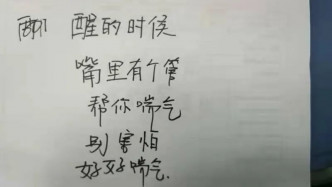 醒的时候
嘴里有个管
帮你喘气
别害怕
好好喘气.